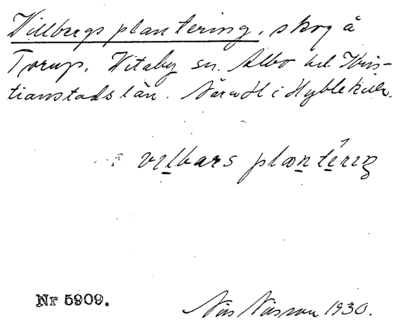 Villbergs plantering, skog å
Torup. Vitaby sn. Albo hd. Kris-
tianstads län.
vilbars plantering
Nr 5909.
Nils Nilsson 1930.